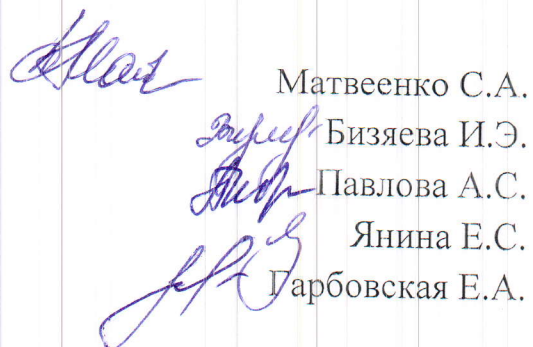 Матвеенко С.А.
Бизяева И.Э.
Павлова А.С.
Янина Е.С.
Гарбовская Е.А.